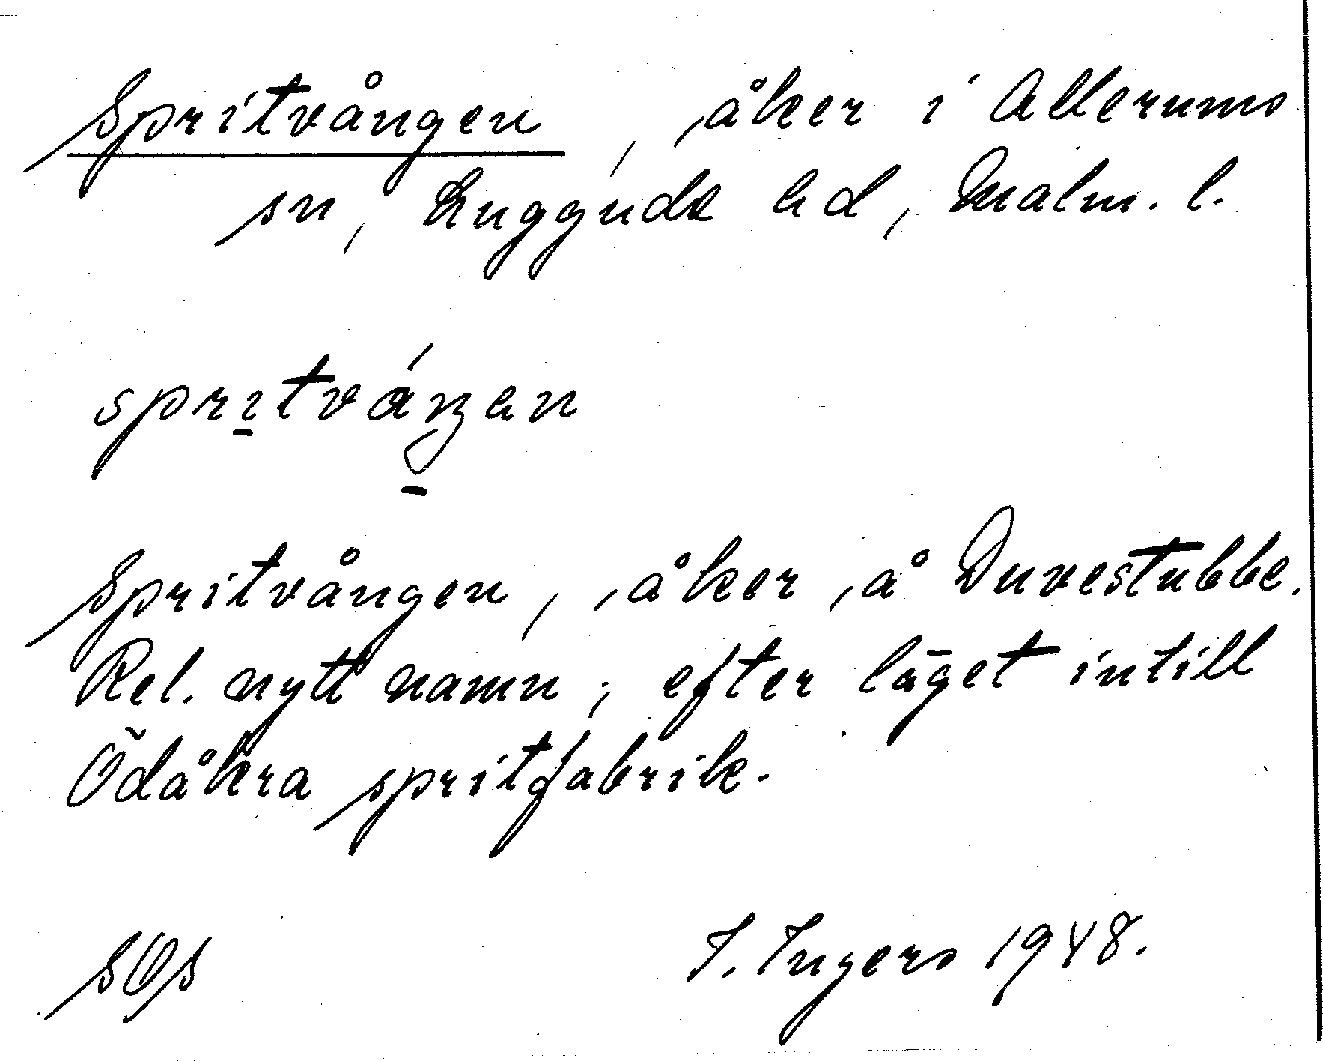 Spritvången, åker i Allerums
sn, Luggude hd, Malm. l.
spritváŋan
Spritvången, åker å Duvestubbe.
Rel. nytt namn; efter läget intill
Ödåkra spritfabrik.
SOS
I. Ingers 1948.